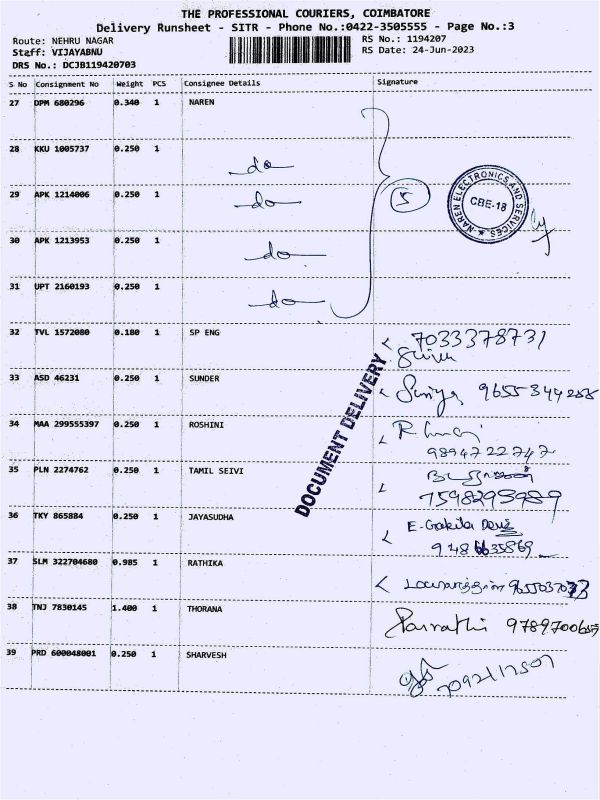 THE PROFESSIONAL COURIERS, COIMBATORE
Delivery Runsheet - SITR - Phone No.:0422-3505555 - Page No.:3
Route: NEHRU NAGAR RS No.: 1194207
Staff: VIJAYABNU RS Date: 24-Jun-2023
DRS No.: DCJB119420703
S No Consignment No Weight PCS Consignee Details Signature
27 DPM 680296 0.340 1 NAREN
28 KKU 1005737 0.250 1 do
29 APK 1214006 0.250 1 do 5
NAREN ELECTRONICS AND SERVICES CBE-18
30 APK 1213953 0.250 1 do
31 UPT 2160193 0.250 1 do
32 TVL 1572080 0.180 1 SP ENG 7033378731
33 ASD 46231 0.250 1 SUNDER Suriya
DOCUMENT DELIVERY
34 MAA 299555397 0.250 1 ROSHINI
9894722747
35 PLN 2274762 0.250 1 TAMIL SEIVI
7598293989
36 TKY 865884 0.250 1 JAYASUDHA E-Gokila Devi
37 SLM 322704680 0.985 1 RATHIKA
38 TNJ 7830145 1.400 1 THORANA Parvathi
39 PRD 600048001 0.250 1 SHARVESH